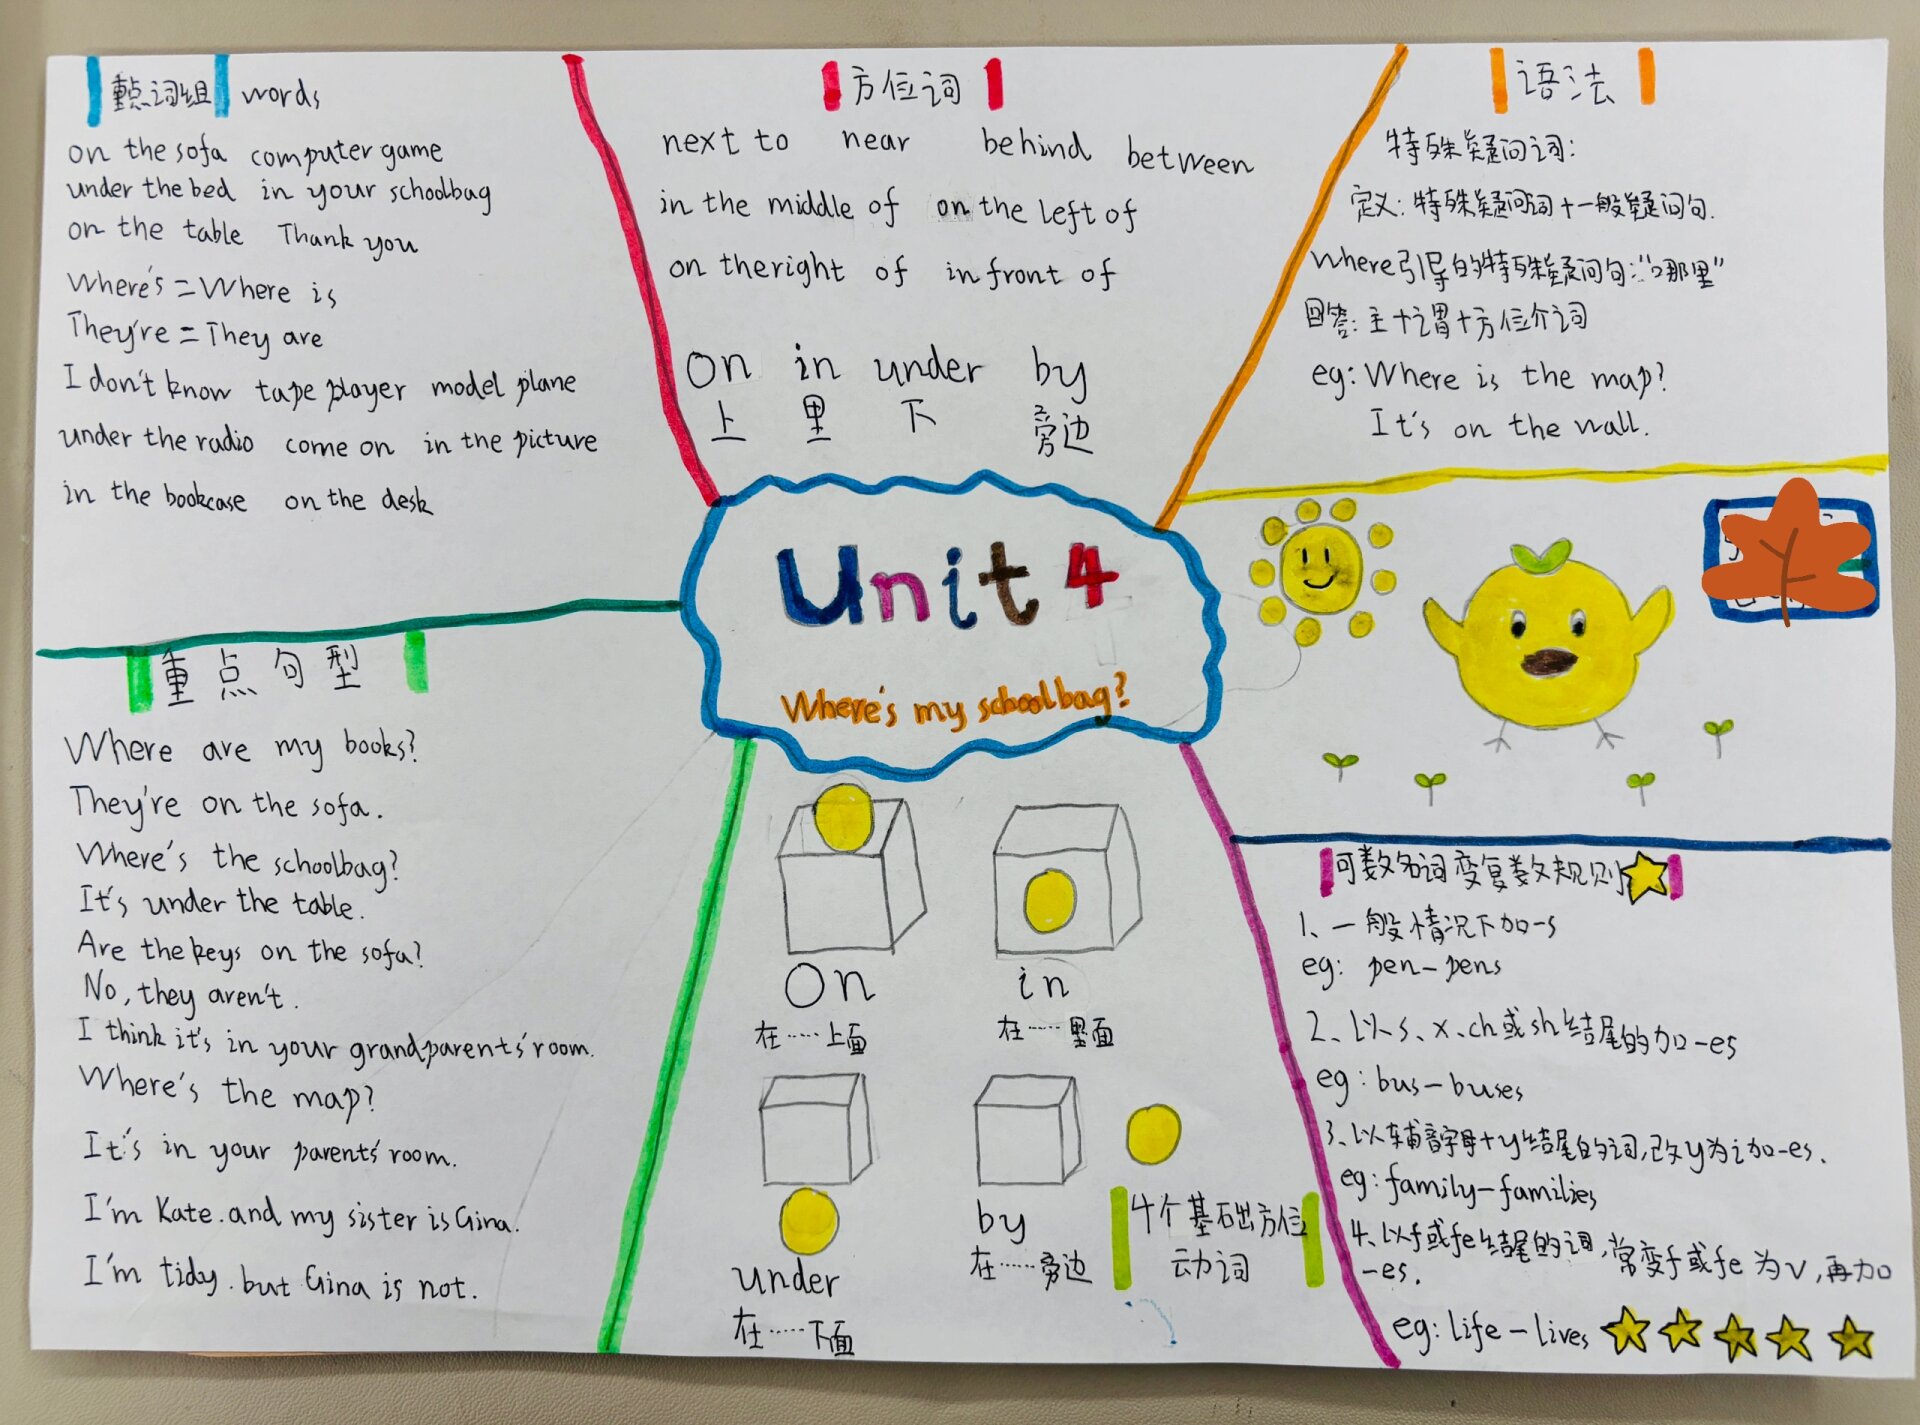 重点词组 words
on the sofa computer game
under the bed in your schoolbag
on the table Thank you
Where's = Where is
They're = They are
I don't know tape player model plane
under the radio come on in the picture
in the bookcase on the desk
方位词
next to near behind between
in the middle of on the left of
on the right of in front of
on in under by
上 里 下 旁边
语法
特殊疑问词:
定义: 特殊疑问词+一般疑问句.
Where引导的特殊疑问句:"哪里"
回答: 主+谓+方位介词
eg: Where is the map?
It's on the wall.
Unit 4
Where's my schoolbag?
重点句型
Where are my books?
They're on the sofa.
Where's the schoolbag?
It's under the table.
Are the keys on the sofa?
No, they aren't.
I think it's in your grandparents' room.
Where's the map?
It's in your parents' room.
I'm Kate. and my sister is Gina.
I'm tidy. but Gina is not.
On in
在……上面 在……里面
under by
在……下面 在……旁边
4个基础方位
动词
可数名词变复数规则
1、一般情况下加-s
eg: pen-pens
2、以s、x、ch或sh结尾的加-es
eg: bus-buses
3、以辅音字母+y结尾的词,改y为i加-es.
eg: family-families
4、以f或fe结尾的词,常变f或fe为v,再加
-es.
eg: life-lives